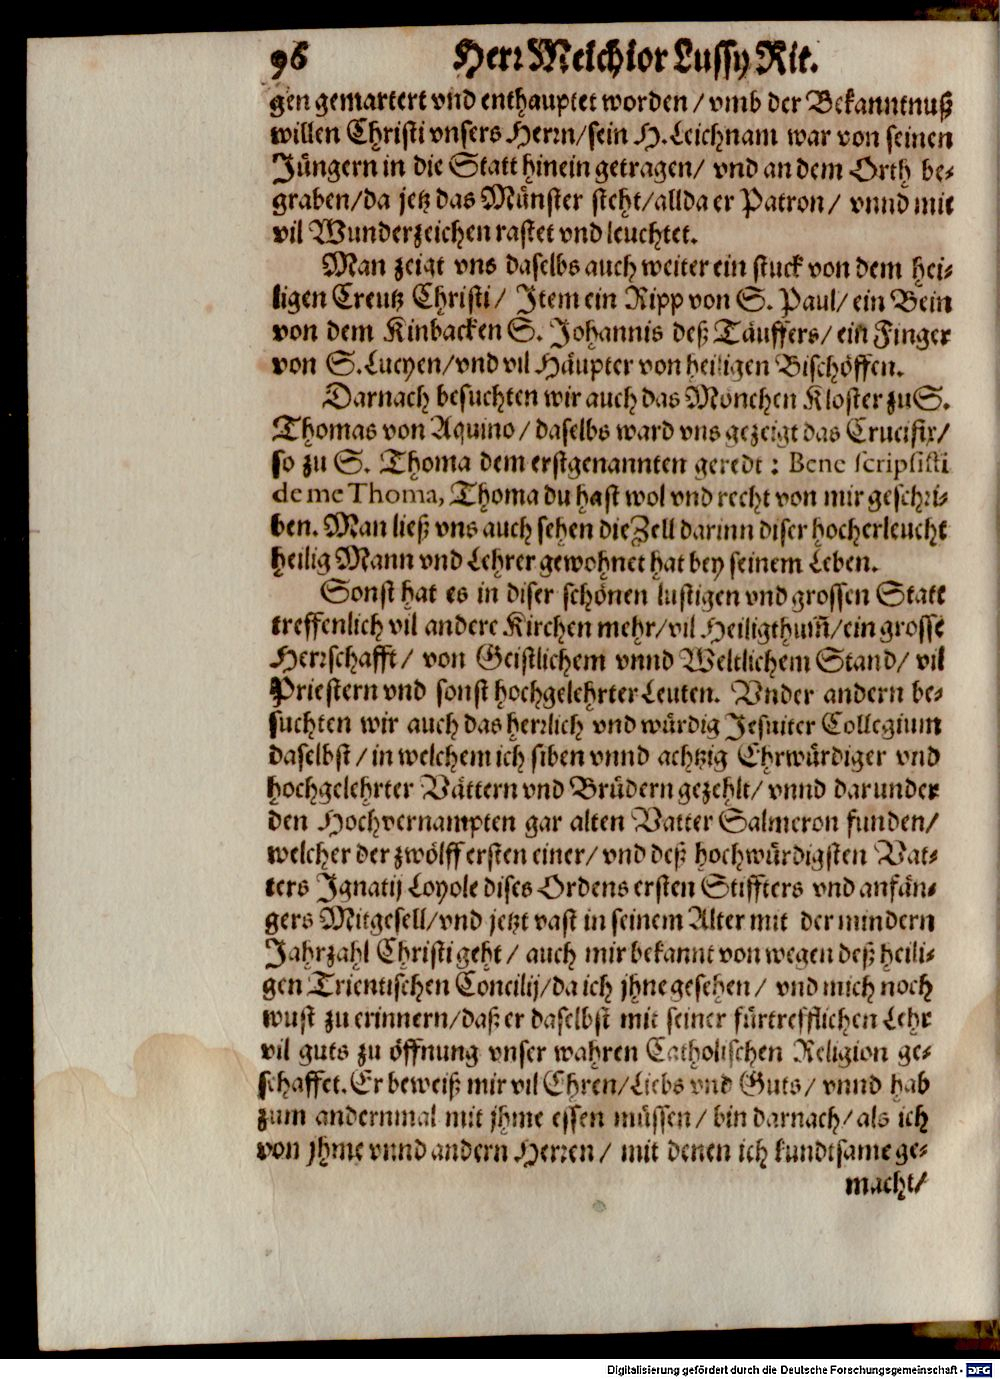 96 Herr Melchior Lussy Rit.
gen gemartert vnd enthauptet worden / vmb der Bekanntnuß
willen Christi vnsers Herrn/sein H. Leichnam war von seinen
Jüngern in die Statt hinein getragen/ vnd an dem Orth be-
graben/da jetz das Münster steht/allda er Patron/ vnnd mit
vil Wunderzeichen rastet vnd leuchtet.
Man zeigt vns daselbs auch weiter ein stuck von dem hei-
ligen Creutz Christi/ Item ein Ripp von S. Paul/ ein Bein
von dem Kinbacken S. Johannis deß Täuffers/ ein Finger
von S. Lucyen/vnd vil Häupter von heiligen Bischöffen.
Darnach besuchten wir auch das Mönchen Kloster zu S.
Thomas von Aquino/ daselbs ward vns gezeigt das Crucifix/
so zu S. Thoma dem erstgenannten geredt: Bene scripsisti
de me Thoma, Thoma du hast wol vnd recht von mir geschri-
ben. Man ließ vns auch sehen die Zell darinn diser hocherleucht
heilig Mann vnd Lehrer gewohnet hat bey seinem Leben.
Sonst hat es in diser schönen lustigen vnd grossen Statt
treffenlich vil andere Kirchen mehr/vil Heiligthum̃/ein grosse
Herrschafft/ von Geistlichem vnnd Weltlichem Stand/ vil
Priestern vnd sonst hochgelehrter Leuten. Vnder andern be-
suchten wir auch das herrlich vnd würdig Jesuiter Collegium
daselbst/ in welchem ich siben vnnd achtzig Ehrwürdiger vnd
hochgelehrter Vättern vnd Brüdern gezehlt/ vnnd darunder
den Hochvernampten gar alten Vatter Salmeron funden/
welcher der zwölff ersten einer/ vnd deß hochwürdigsten Vat-
ters Ignatij Loyole dises Ordens ersten Stiffters vnd anfän-
gers Mitgesell/vnd jetzt vast in seinem Alter mit der mindern
Jahrzahl Christi geht/ auch mir bekannt von wegen deß heili-
gen Trientischen Concilij/da ich jhne gesehen/ vnd mich noch
wust zu erinnern/daß er daselbst mit seiner fürtrefflichen Lehr
vil guts zu öffnung vnser wahren Catholischen Religion ge-
schaffet. Er beweiß mir vil Ehren/Liebs vnd Guts/ vnnd hab
zum andernmal mit jhme essen müssen/ bin darnach/ als ich
von jhme vnnd andern Herren/ mit denen ich kundtsame ge-
macht/
Digitalisierung gefördert durch die Deutsche Forschungsgemeinschaft - DFG